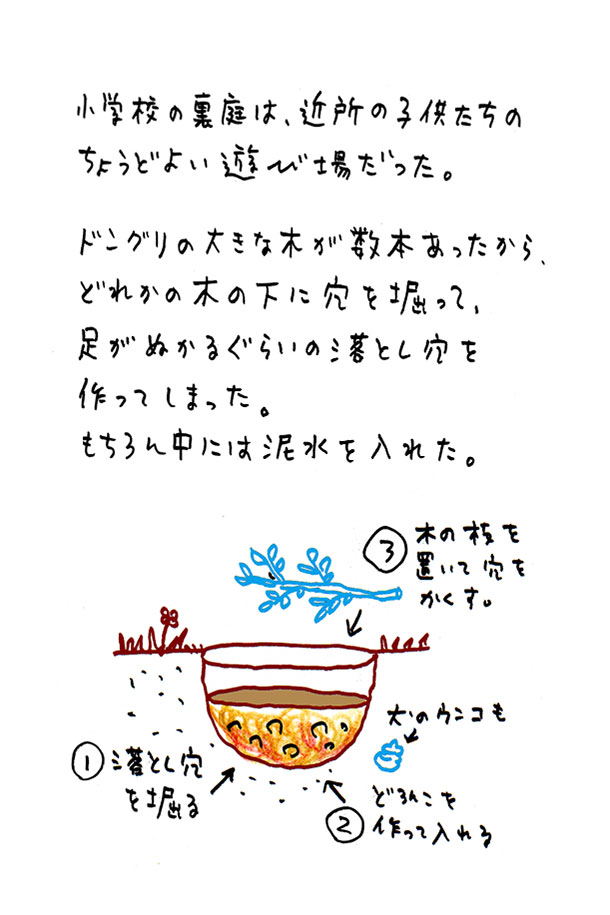 小学校の裏庭は、近所の子供たちの
ちょうどよい遊び場だった。
ドングリの大きな木が数本あったから、
どれかの木の下に穴を掘って、
足がぬかるぐらいの落とし穴を
作ってしまった。
もちろん中には泥水を入れた。
③木の枝を
置いて穴を
かくす。
犬のウンコも
①落とし穴
を掘る
②どろんこを
作って入れる